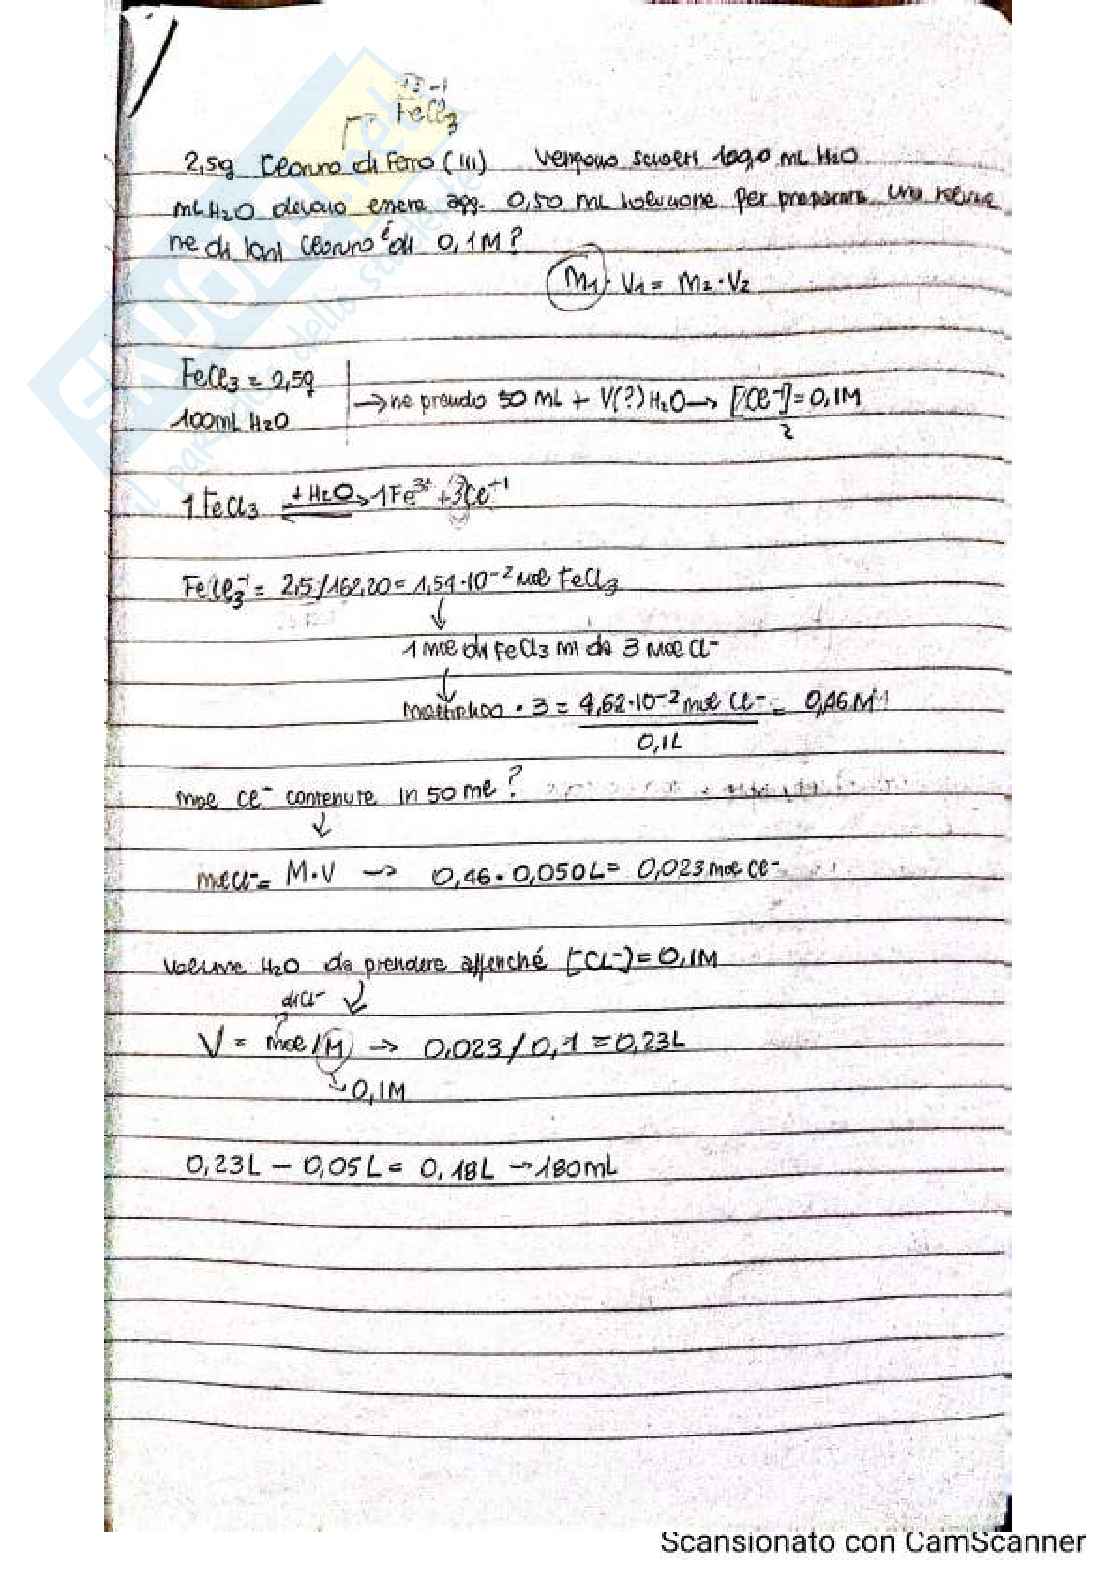 +3 -1
FeCl3
2,5g Cloruro di Ferro (III) vengono sciolti 100,0 mL H2O
mL H2O devono essere agg. 0,50 mL soluzione per preparare una soluzio
ne di ioni cloruro è di 0,1M?
M1 · V1 = M2 · V2
FeCl3 = 2,5g
100mL H2O
→ ne prendo 50 mL + V(?) H2O → [Cl-1] = 0,1M
2
1 FeCl3 + H2O 1Fe3+ + 3Cl-1
FeCl3 = 2,5/162,20 = 1,54·10-2 mol FeCl3
1 mole di FeCl3 mi dà 3 mol Cl-
moltiplico · 3 = 4,62·10-2 mol Cl- = 0,46M
0,1L
mol Cl- contenute in 50 ml?
mol Cl- = M·V → 0,46 · 0,050L = 0,023 mol Cl-
Volume H2O da prendere affinché [Cl-] = 0,1M
di Cl-
V = mol/M → 0,023/0,1 = 0,23L
0,1M
0,23L - 0,05L = 0,18L → 180mL
Scansionato con CamScanner